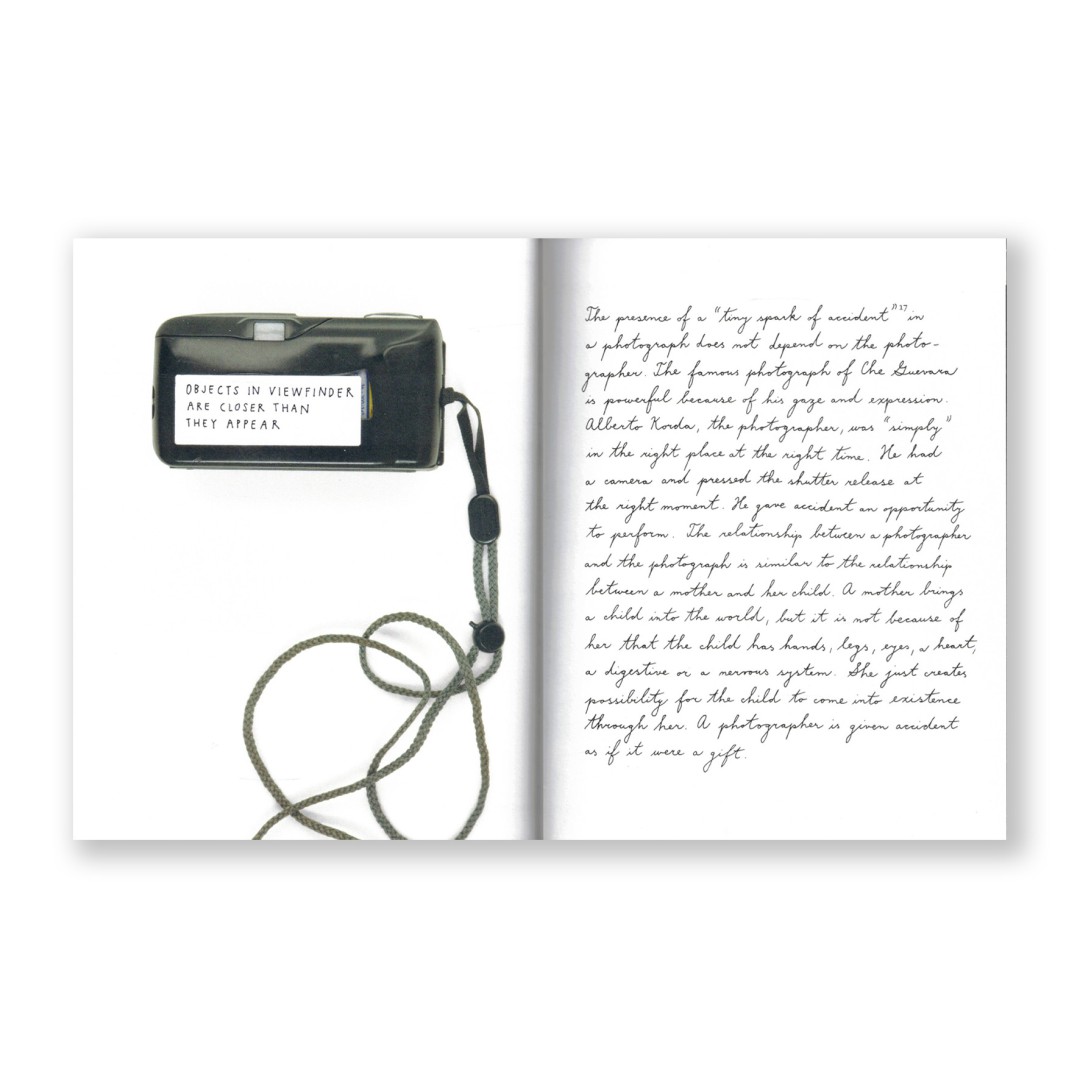 OBJECTS IN VIEWFINDER
ARE CLOSER THAN
THEY APPEAR
The presence of a "tiny spark of accident"37 in
a photograph does not depend on the photo-
grapher. The famous photograph of Che Guevara
is powerful because of his gaze and expression.
Alberto Korda, the photographer, was "simply"
in the right place at the right time. He had
a camera and pressed the shutter release at
the right moment. He gave accident an opportunity
to perform. The relationship between a photographer
and the photograph is similar to the relationship
between a mother and her child. A mother brings
a child into the world, but it is not because of
her that the child has hands, legs, eyes, a heart,
a digestive or a nervous system. She just creates
possibility for the child to come into existence
through her. A photographer is given accident
as if it were a gift.